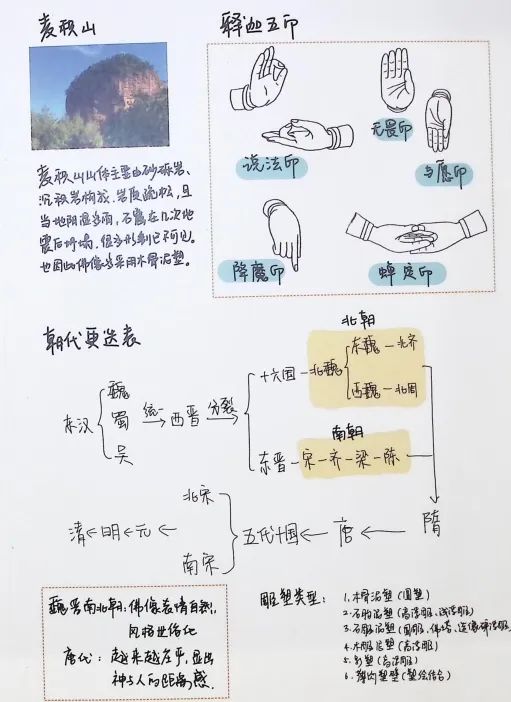 麦积山
释迦五印
说法印
无畏印
与愿印
降魔印
禅定印
麦积山山体主要由砂砾岩、
沉积岩构成,岩质疏松,且
当地阴湿多雨,石窟在几次地
震后坍塌,很多形制已不可见。
也因此佛像多采用木骨泥塑。
朝代更迭表
东汉
魏
蜀
吴
统一
西晋
分裂
十六国—北魏
北朝
东魏—北齐
西魏—北周
南朝
东晋—宋—齐—梁—陈
隋
唐
五代十国
北宋
南宋
清←明←元
魏晋南北朝:佛像表情自然,
风格世俗化
唐代:越来越庄严,显出
神与人的距离感.
雕塑类型:
1.木骨泥塑(圆塑)
2.石胎泥塑(高浮雕、浅浮雕)
3.石雕泥塑(圆雕、佛塔、造像碑浮雕)
4.木雕泥塑(高浮雕)
5.影塑(高浮雕)
6.薄肉塑壁(塑绘结合)